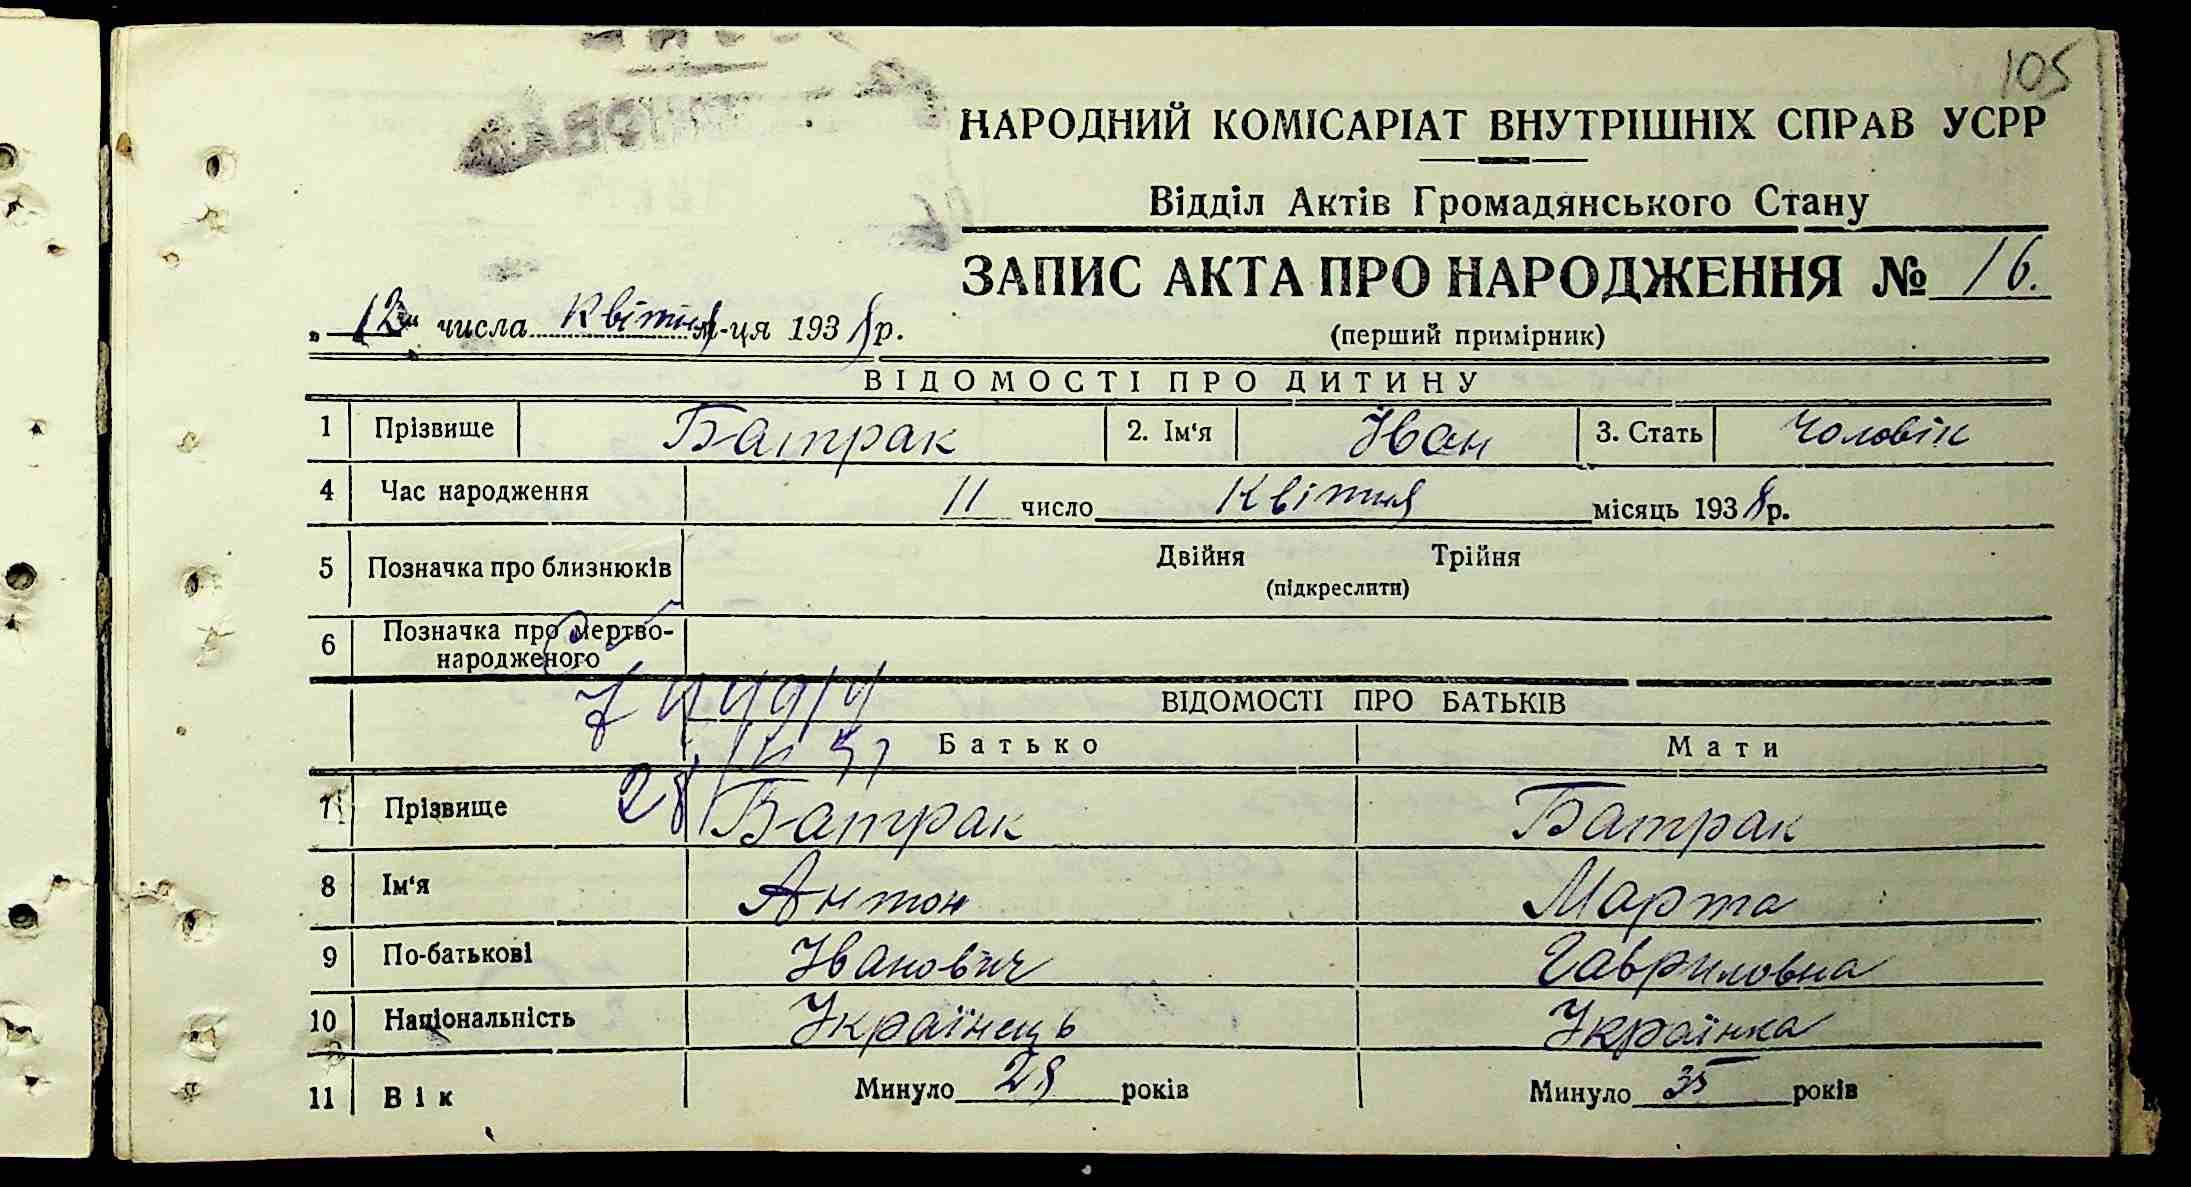 105
НАРОДНИЙ КОМІСАРІАТ ВНУТРІШНІХ СПРАВ УСРР
Відділ Актів Громадянського Стану
ЗАПИС АКТА ПРО НАРОДЖЕННЯ № 16.
„ 12 " числа Квітня м-ця 1938 р.
(перший примірник)
ВІДОМОСТІ ПРО ДИТИНУ
1 Прізвище Батрак 2. Ім‘я Іван 3. Стать Чоловік
4 Час народження 11 число Квітня місяць 1938 р.
5 Позначка про близнюків Двійня Трійня
(підкреслити)
6 Позначка про мертво-
народженого
ВІДОМОСТІ ПРО БАТЬКІВ
Батько Мати
7 Прізвище Батрак Батрак
8 Ім‘я Антон Марта
9 По-батькові Іванович Гавриловна
10 Національність Українець Українка
11 Вік Минуло 28 років Минуло 35 років